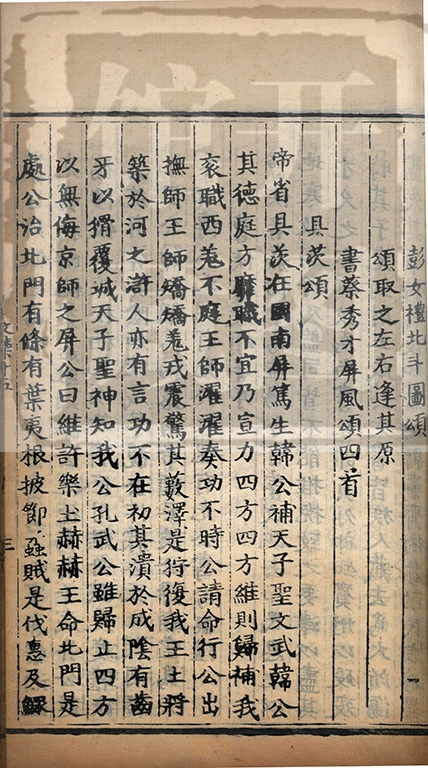 彭女禮北斗圖頌
頌取之左右逢其原
書蔡秀才屏風頌四首
具茨頌
帝省具茨在國南屏篤生韓公補天子聖文武韓公
其德庭方靡職不宜乃宣力四方四方維則歸補我
衮職西羌不庭王師濯濯奏功不時公請命行公出
撫師王師矯矯羌戎震驚其藪澤是狩復我王土將
築於河之滸人亦有言功不在初其潰於成陰有齒
牙以猾覆城天子聖神知我公孔武公雖歸止四方
以無侮京師之屏公曰維許樂土赫赫王命北門是
處公治北門有條有葉夷根披節蟊賊是伐惠及鰥